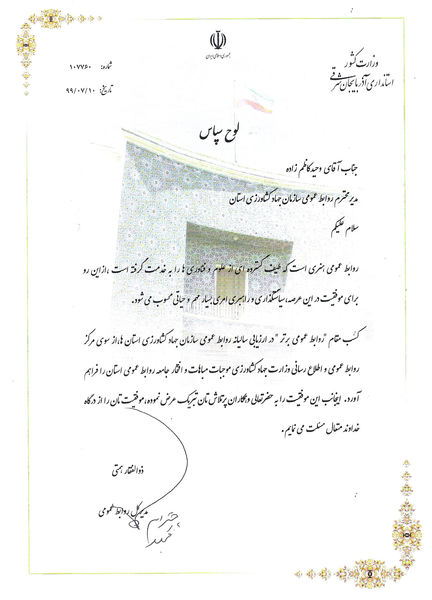 جمهوری اسلامی ایران
وزارت کشور
استانداری آذربایجان شرقی
شماره: ۱۰۷۷۶۰
تاریخ: ۹۹/۰۷/۱۰
لوح سپاس
جناب آقای وحید کاظم زاده
مدیر محترم روابط عمومی سازمان جهاد کشاورزی استان
سلام علیکم
روابط عمومی هنری است که طیف گسترده ای از علوم و فناوری ها را به خدمت گرفته است ،از این رو
برای موفقیت در این عرصه، سیاستگذاری و راهبری امری بسیار مهم و حیاتی محسوب می شود.
کسب مقام "روابط عمومی برتر" در ارزیابی سالیانه روابط عمومی سازمان جهاد کشاورزی استان ها،از سوی مرکز
روابط عمومی و اطلاع رسانی وزارت جهاد کشاورزی موجبات مباهات و افتخار جامعه روابط عمومی استان را فراهم
آورد. اینجانب این موفقیت را به حضرتعالی و همکاران پرتلاش تان تبریک عرض نموده،موفقیت تان را از درگاه
خداوند متعال مسئلت می نمایم.
ذوالفقار همتی
مدیر کل روابط عمومی